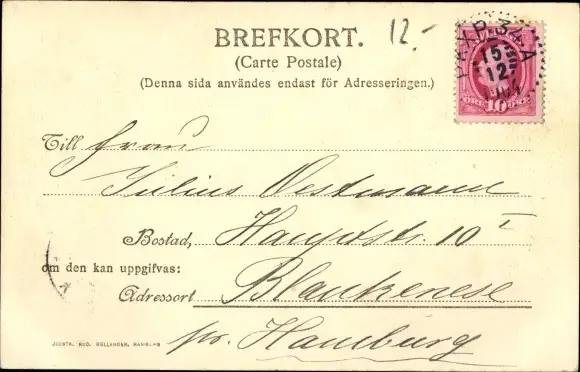 BREFKORT.
12.-
(Carte Postale)
(Denna sida användes endast för Adresseringen.)
PKXP 34 A
15
12
10
Till Frau
Julius Oestmann
Bostad, Hauptstr. 10 I
om den kan uppgifvas:
Adressort Blankenese
pr. Hamburg